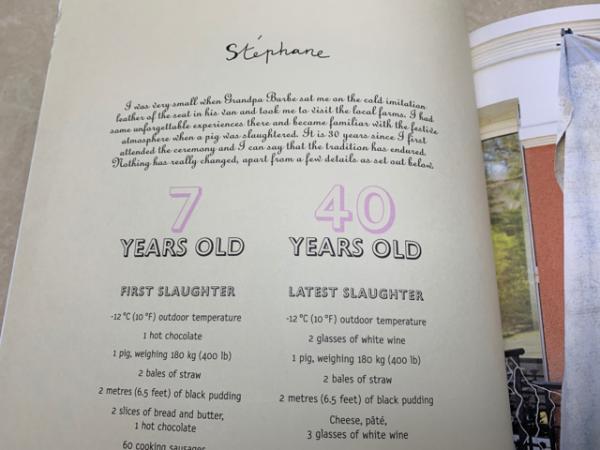 Stéphane
I was very small when Grandpa Barbe sat me on the cold imitation
leather of the seat in his van and took me to visit the local farms. I had
some unforgettable experiences there and became familiar with the festive
atmosphere when a pig was slaughtered. It is 30 years since I first
attended the ceremony and I can say that the tradition has endured.
Nothing has really changed, apart from a few details as set out below.
7
YEARS OLD
FIRST SLAUGHTER
-12 °C (10 °F) outdoor temperature
1 hot chocolate
1 pig, weighing 180 kg (400 lb)
2 bales of straw
2 metres (6.5 feet) of black pudding
2 slices of bread and butter,
1 hot chocolate
60 cooking sausages
40
YEARS OLD
LATEST SLAUGHTER
-12 °C (10 °F) outdoor temperature
2 glasses of white wine
1 pig, weighing 180 kg (400 lb)
2 bales of straw
2 metres (6.5 feet) of black pudding
Cheese, pâté,
3 glasses of white wine